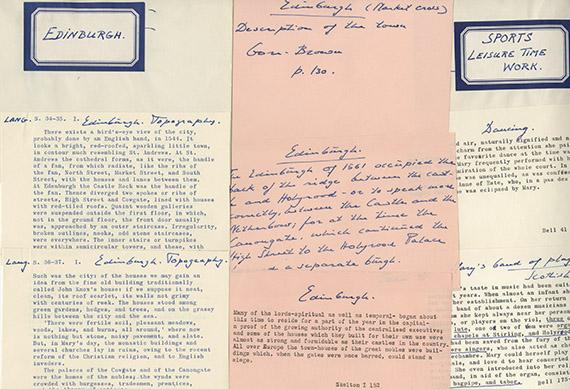 EDINBURGH.
LANG. S. 34-35. I. Edinburgh. Topography.
There exists a bird's-eye view of the city,
probably done by an English hand, in 1544. It
looks a bright, red-roofed, sparkling little town,
in contour much resembling St. Andrews. At St.
Andrews the cathedral forms, as it were, the handle
of a fan, from which radiate, like the ribs of
the fan, North Street, Market Street, and South
Street, with the houses and lanes between them.
At Edenburgh the Castle Rock was the handle of
the fan. Thence diverged two spokes or ribs of
streets, High Street and Cowgate, lined with houses
with red-tiled roofs. Quaint wooden galleries
were suspended outside the first floor, in which,
not in the ground floor, the front door usually
was, approached by an outer staircase. Irregularity,
broken outlines, nooks, odd stone staircases,
were everywhere. The inner stairs or turnpikes
were within semicircular towers, and these, with
Lang. S. 36-37. I. Edinburgh. Topography.
Such was the city: of the houses we may gain an
idea from the fine old building traditionally
called John Knox's house: if we suppose it neat,
clean, its roof scarlet, its walls not grimy
with centuries of reek. The houses stood among
green gardens, hedges, and trees, and on the grassy
hills between the city and the sea.
"There were fertile soil, pleasant meadows,
woods, lakes, and burns, all around," where now
is nothing but stone, noisy pavement, and slate.
But, in Mary's day, the monastic buildings and
several churches lay in ruins, owing to the recent
reform of the Christian religion, and to English
invaders.
The palaces of the Cowgate and of the Canongate
were the homes of the nobles, the wynds were
crowded with burgesses, tradesmen, prentices,
Edinburgh (Market Cross)
Description of the town
Gon. Brown
p. 130.
Edinburgh.
In Edinburgh of 1661 occupied the
back of the ridge between the cast-
and Holyrood - or to speak more
correctly, between the Castle and the
Netherbow, for at the time the
Canongate, which continued the
High Street to the Holyrood Palace
a separate burgh.
Edinburgh.
Many of the lords-spiritual as well as temporal- began about
this time to reside for a part of the year in the capital-
a proof of the growing authority of the centralised executive;
and some of the houses which they built for their own use were
almost as strong and formidable as their castles in the country.
All over Europe the town-houses of the great nobles were build-
dings which, when the gates were once barred, could stand a
siege.
Skelton I 152
SPORTS
LEISURE TIME
WORK.
Dancing.
d air, naturally dignified and
charm from the attention she pai
e favorite dance at the time wa
Mary frequently performed with h
miration of the whole court. In
was unequalled, as was confess
iane of Este, who, in a pas des
was eclipsed by Mary.
Bell 41
Mary's band of play
Scottish
's taste in music had been culti
t years. When almost an infant sh
her establishment. On her return
band of about a dozen musicians
om she kept always near her person
, or players on the viol, three
lute, one or two of whom were
chapels at Stirling, and Holyroo
had been saved from the fury of
ongers, who also acted as cho
bechambre. Mary could herself play
als, and loved to hear concerted
he even introduced into her relig
and, in aid of the organ, consist
bagpipe, and drum.
Bell 11